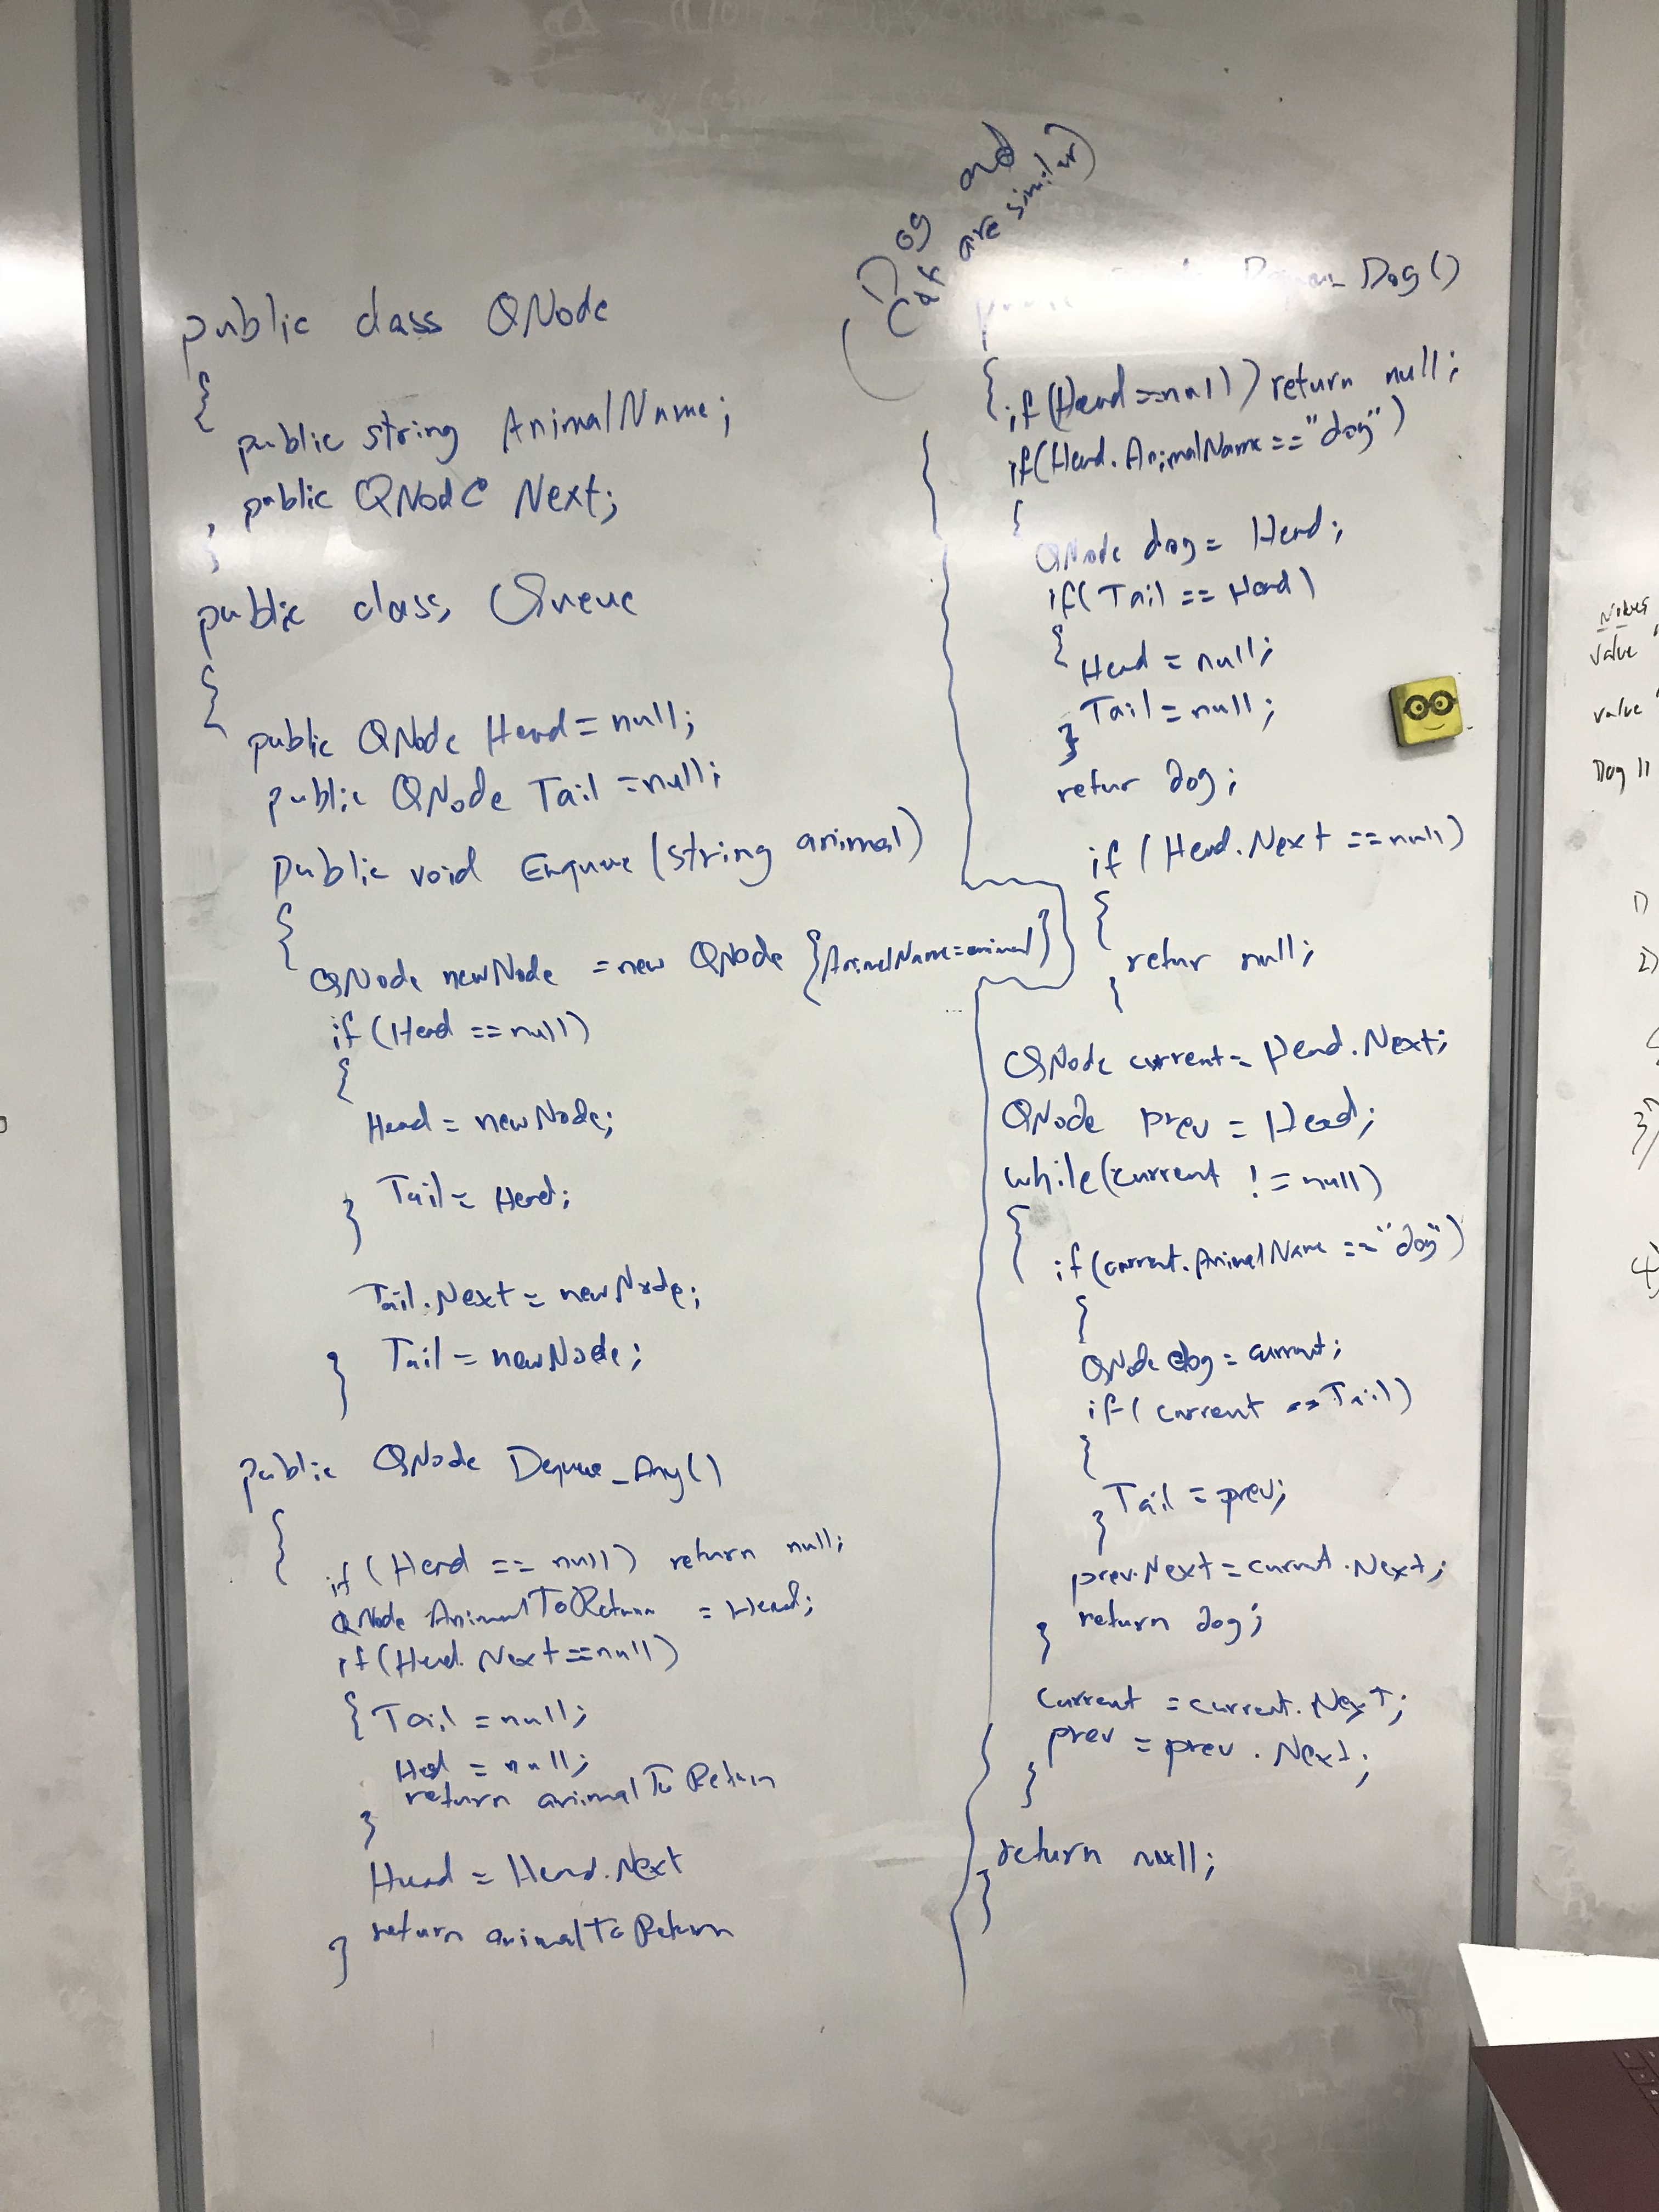 public class QNode
{
public string AnimalName;
public QNode Next;
}
public class Queue
{
public QNode Head = null;
public QNode Tail = null;
public void Enqueue (string animal)
{
QNode newNode = new QNode {AnimalName = animal}
if (Head == null)
{
Head = newNode;
Tail = Head;
}
Tail.Next = newNode;
Tail = newNode;
}
public QNode Dequeue_Any()
{
if (Head == null) return null;
QNode AnimalToReturn = Head;
if (Head.Next == null)
{ Tail = null;
Head = null;
return animalToReturn
}
Head = Head.Next
return animalToReturn
}
(Dog and
Cat are similar)
Dequeue_Dog()
{ if (Head == null) return null;
if (Head.AnimalName == "dog")
{
QNode dog = Head;
if (Tail == Head)
{ Head = null;
Tail = null;
}
retur dog;
if (Head.Next == null)
{
retur null;
}
QNode current = Head.Next;
QNode prev = Head;
while (current != null)
{ if (current.AnimalName == "dog")
{
QNode dog = current;
if (current == Tail)
{
Tail = prev;
}
prev.Next = current.Next;
return dog;
}
current = current.Next;
prev = prev.Next;
}
return null;
}
value
value
Dog
1)
2)
3)
4)